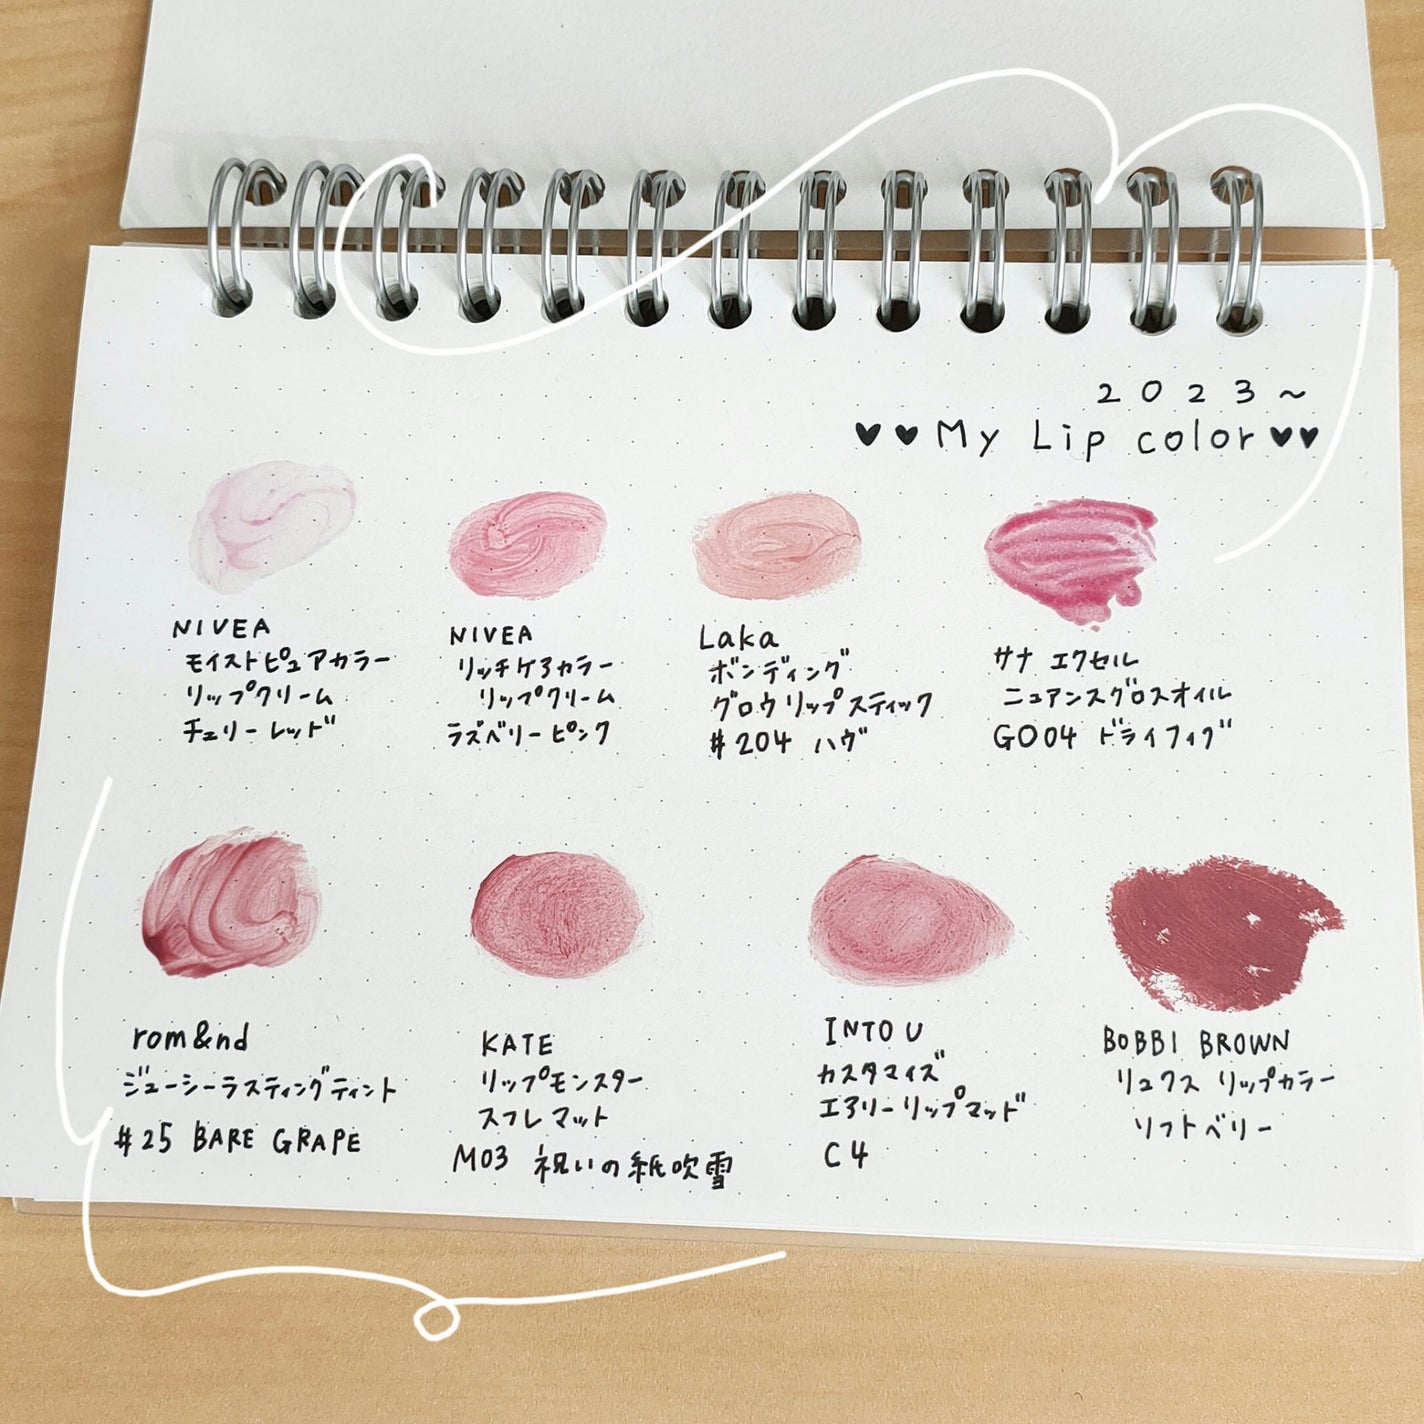 2023～
♥♥My Lip color♥♥
NIVEA
モイストピュアカラー
リップクリーム
チェリーレッド
NIVEA
リッチケアカラー
リップクリーム
ラズベリーピンク
Laka
ボンディング
グロウリップスティック
#204 ハヴ
サナ エクセル
ニュアンスグロスオイル
GO04 ドライフィグ
rom&nd
ジューシーラスティングティント
#25 BARE GRAPE
KATE
リップモンスター
スフレマット
M03 祝いの紙吹雪
INTO U
カスタマイズ
エアリーリップマッド
C4
BOBBI BROWN
リュクス リップカラー
ソフトベリー